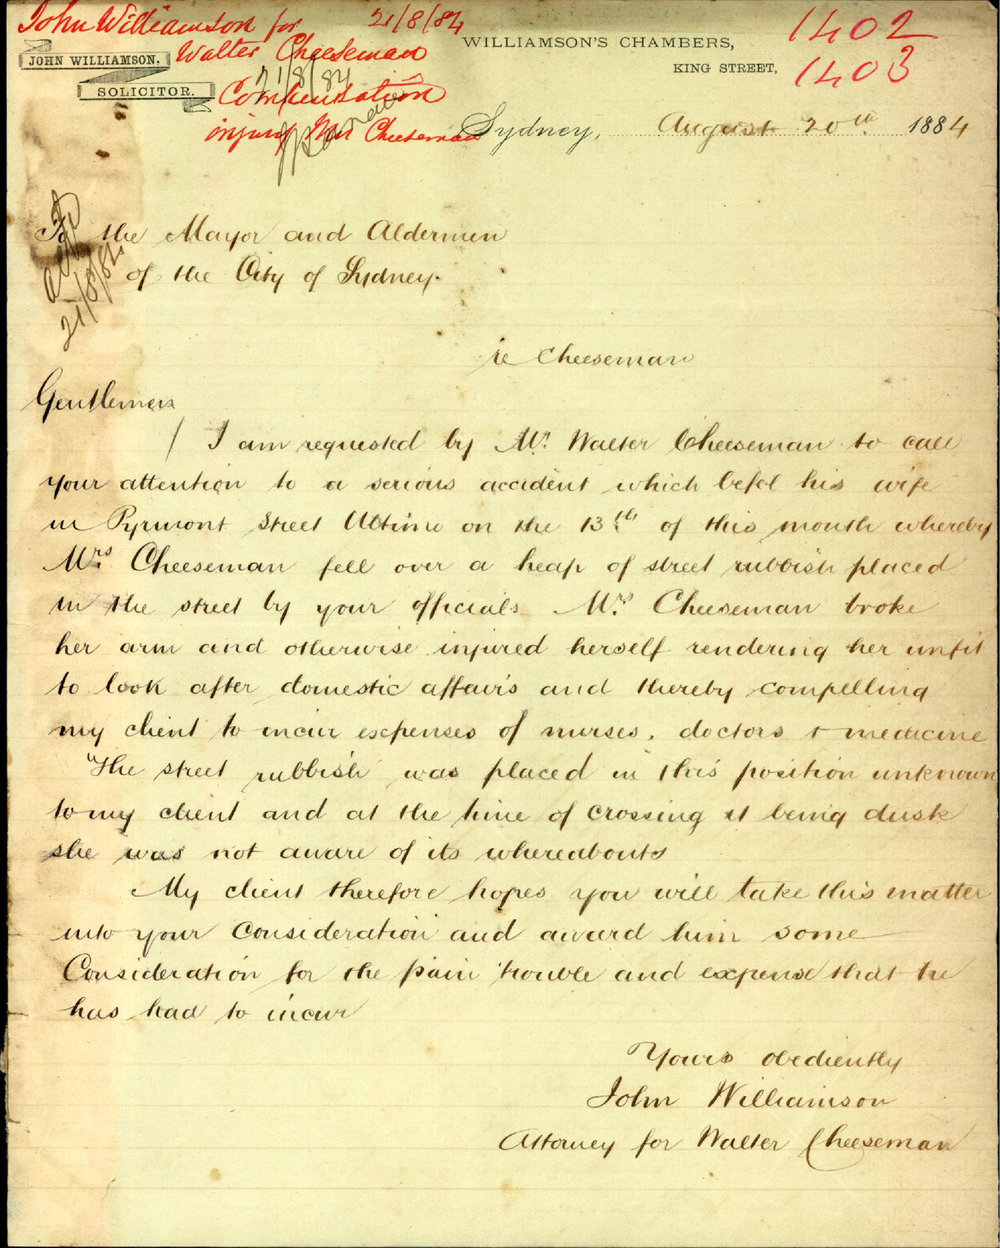 John Williamson for 21/8/84
Walter Cheeseman
Compensation
injury Mrs Cheeseman
1402
1403
JOHN WILLIAMSON,
SOLICITOR.
WILLIAMSON'S CHAMBERS,
KING STREET,
21/8/84
Sydney, August 20th 1884
21/8/84
To the Mayor and Aldermen
of the City of Sydney.
re Cheeseman
Gentlemen
I am requested by Mr. Walter Cheeseman to call
your attention to a serious accident which befel his wife
in Pyrmont Street Ultimo on the 13th of this month whereby
Mrs Cheeseman fell over a heap of street rubbish placed
in the street by your officials. Mrs Cheeseman broke
her arm and otherwise injured herself rendering her unfit
to look after domestic affairs and thereby compelling
my client to incur expenses of nurses, doctors & medicine
The street rubbish was placed in this position unknown
to my client and at the time of crossing it being dusk
she was not aware of its whereabouts
My client therefore hopes you will take this matter
into your Consideration and award him some
Consideration for the pain trouble and expense that he
has had to incur
Yours obediently
John Williamson
Attorney for Walter Cheeseman